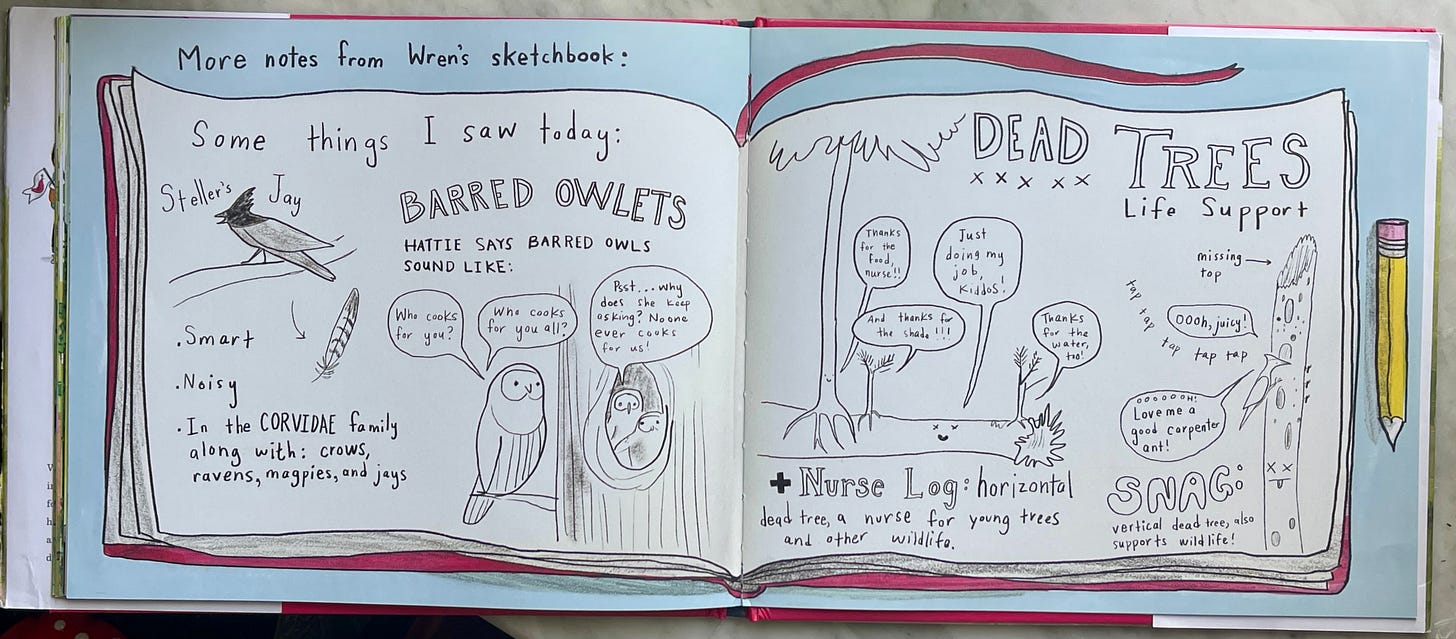 More notes from Wren's sketchbook:
Some things I saw today:
Steller's Jay
.Smart
.Noisy
.In the CORVIDAE family
along with: crows,
ravens, magpies, and jays
BARRED OWLETS
HATTIE SAYS BARRED OWLS
SOUND LIKE:
Who cooks
for you?
Who cooks
for you all?
Psst...why
does she keep
asking? No one
ever cooks
for us!
DEAD TREES
x x x x x
Life Support
Thanks
for the
food,
nurse!!
Just
doing my
job,
kiddos!
And thanks for
the shade!!!
Thanks
for the
water,
too!
+ Nurse Log: horizontal
dead tree, a nurse for young trees
and other wildlife.
missing
top
tap
tap
tap
tap tap tap
OOoh, juicy!
oooooOH!
Love me a
good carpenter
ant!
SNAG:
vertical dead tree, also
supports wildlife!